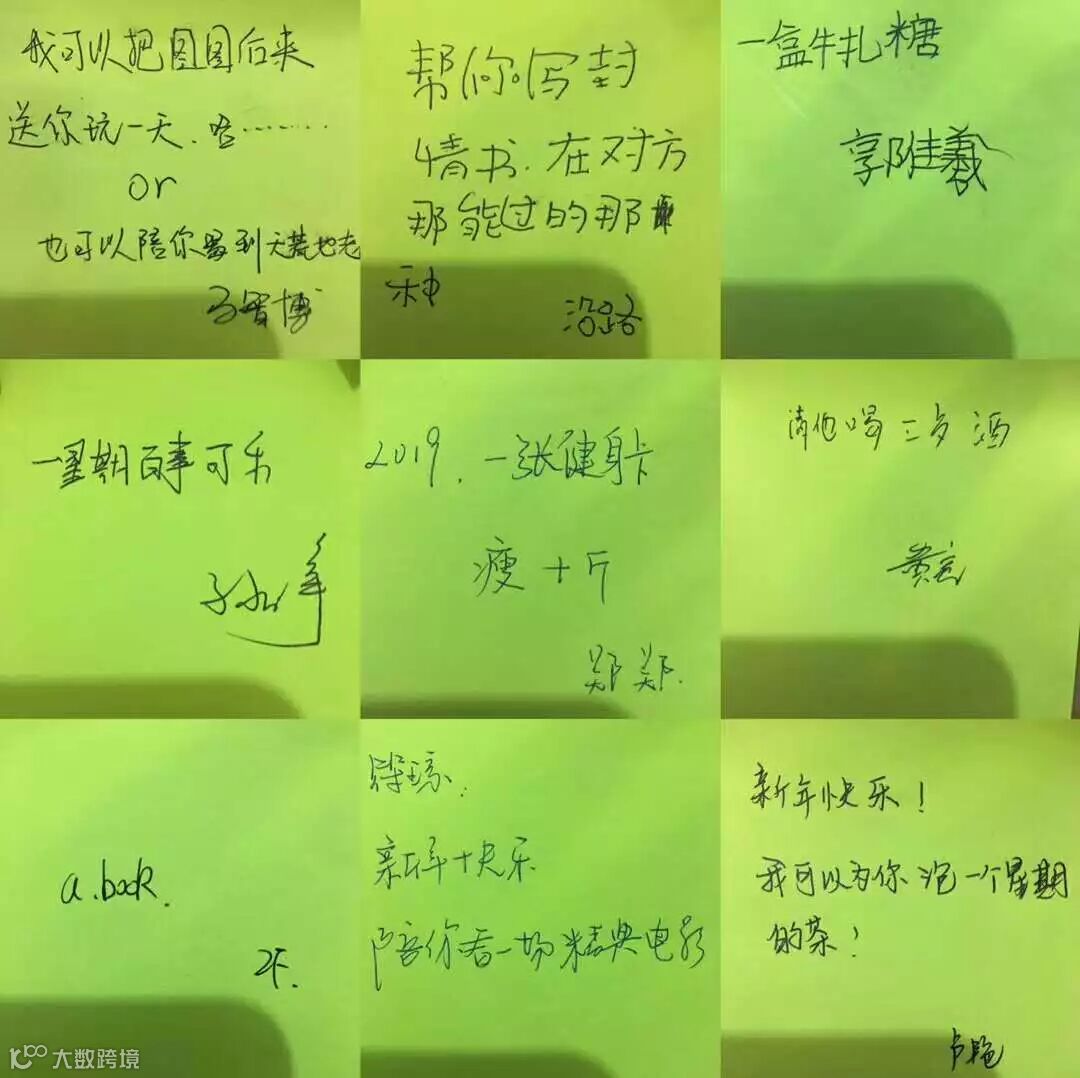 我可以把图图后来
送你玩一天、唔………
or
也可以陪你尬到天荒地老
帮你写封
情书.在对方
那能过的那
种
沿路
一盒牛扎糖
郭佳羲
一星期百事可乐
2019.一张健身卡
瘦十斤
郑郑.
请他喝三点酒
a.book.
新年快乐
陪你看一场精典电影
新年快乐!
我可以为你泡一个星期
的茶!
卢艳
大数跨境